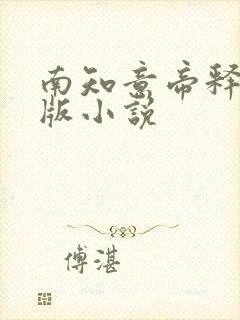 南知意帝释
版小说
傅湛